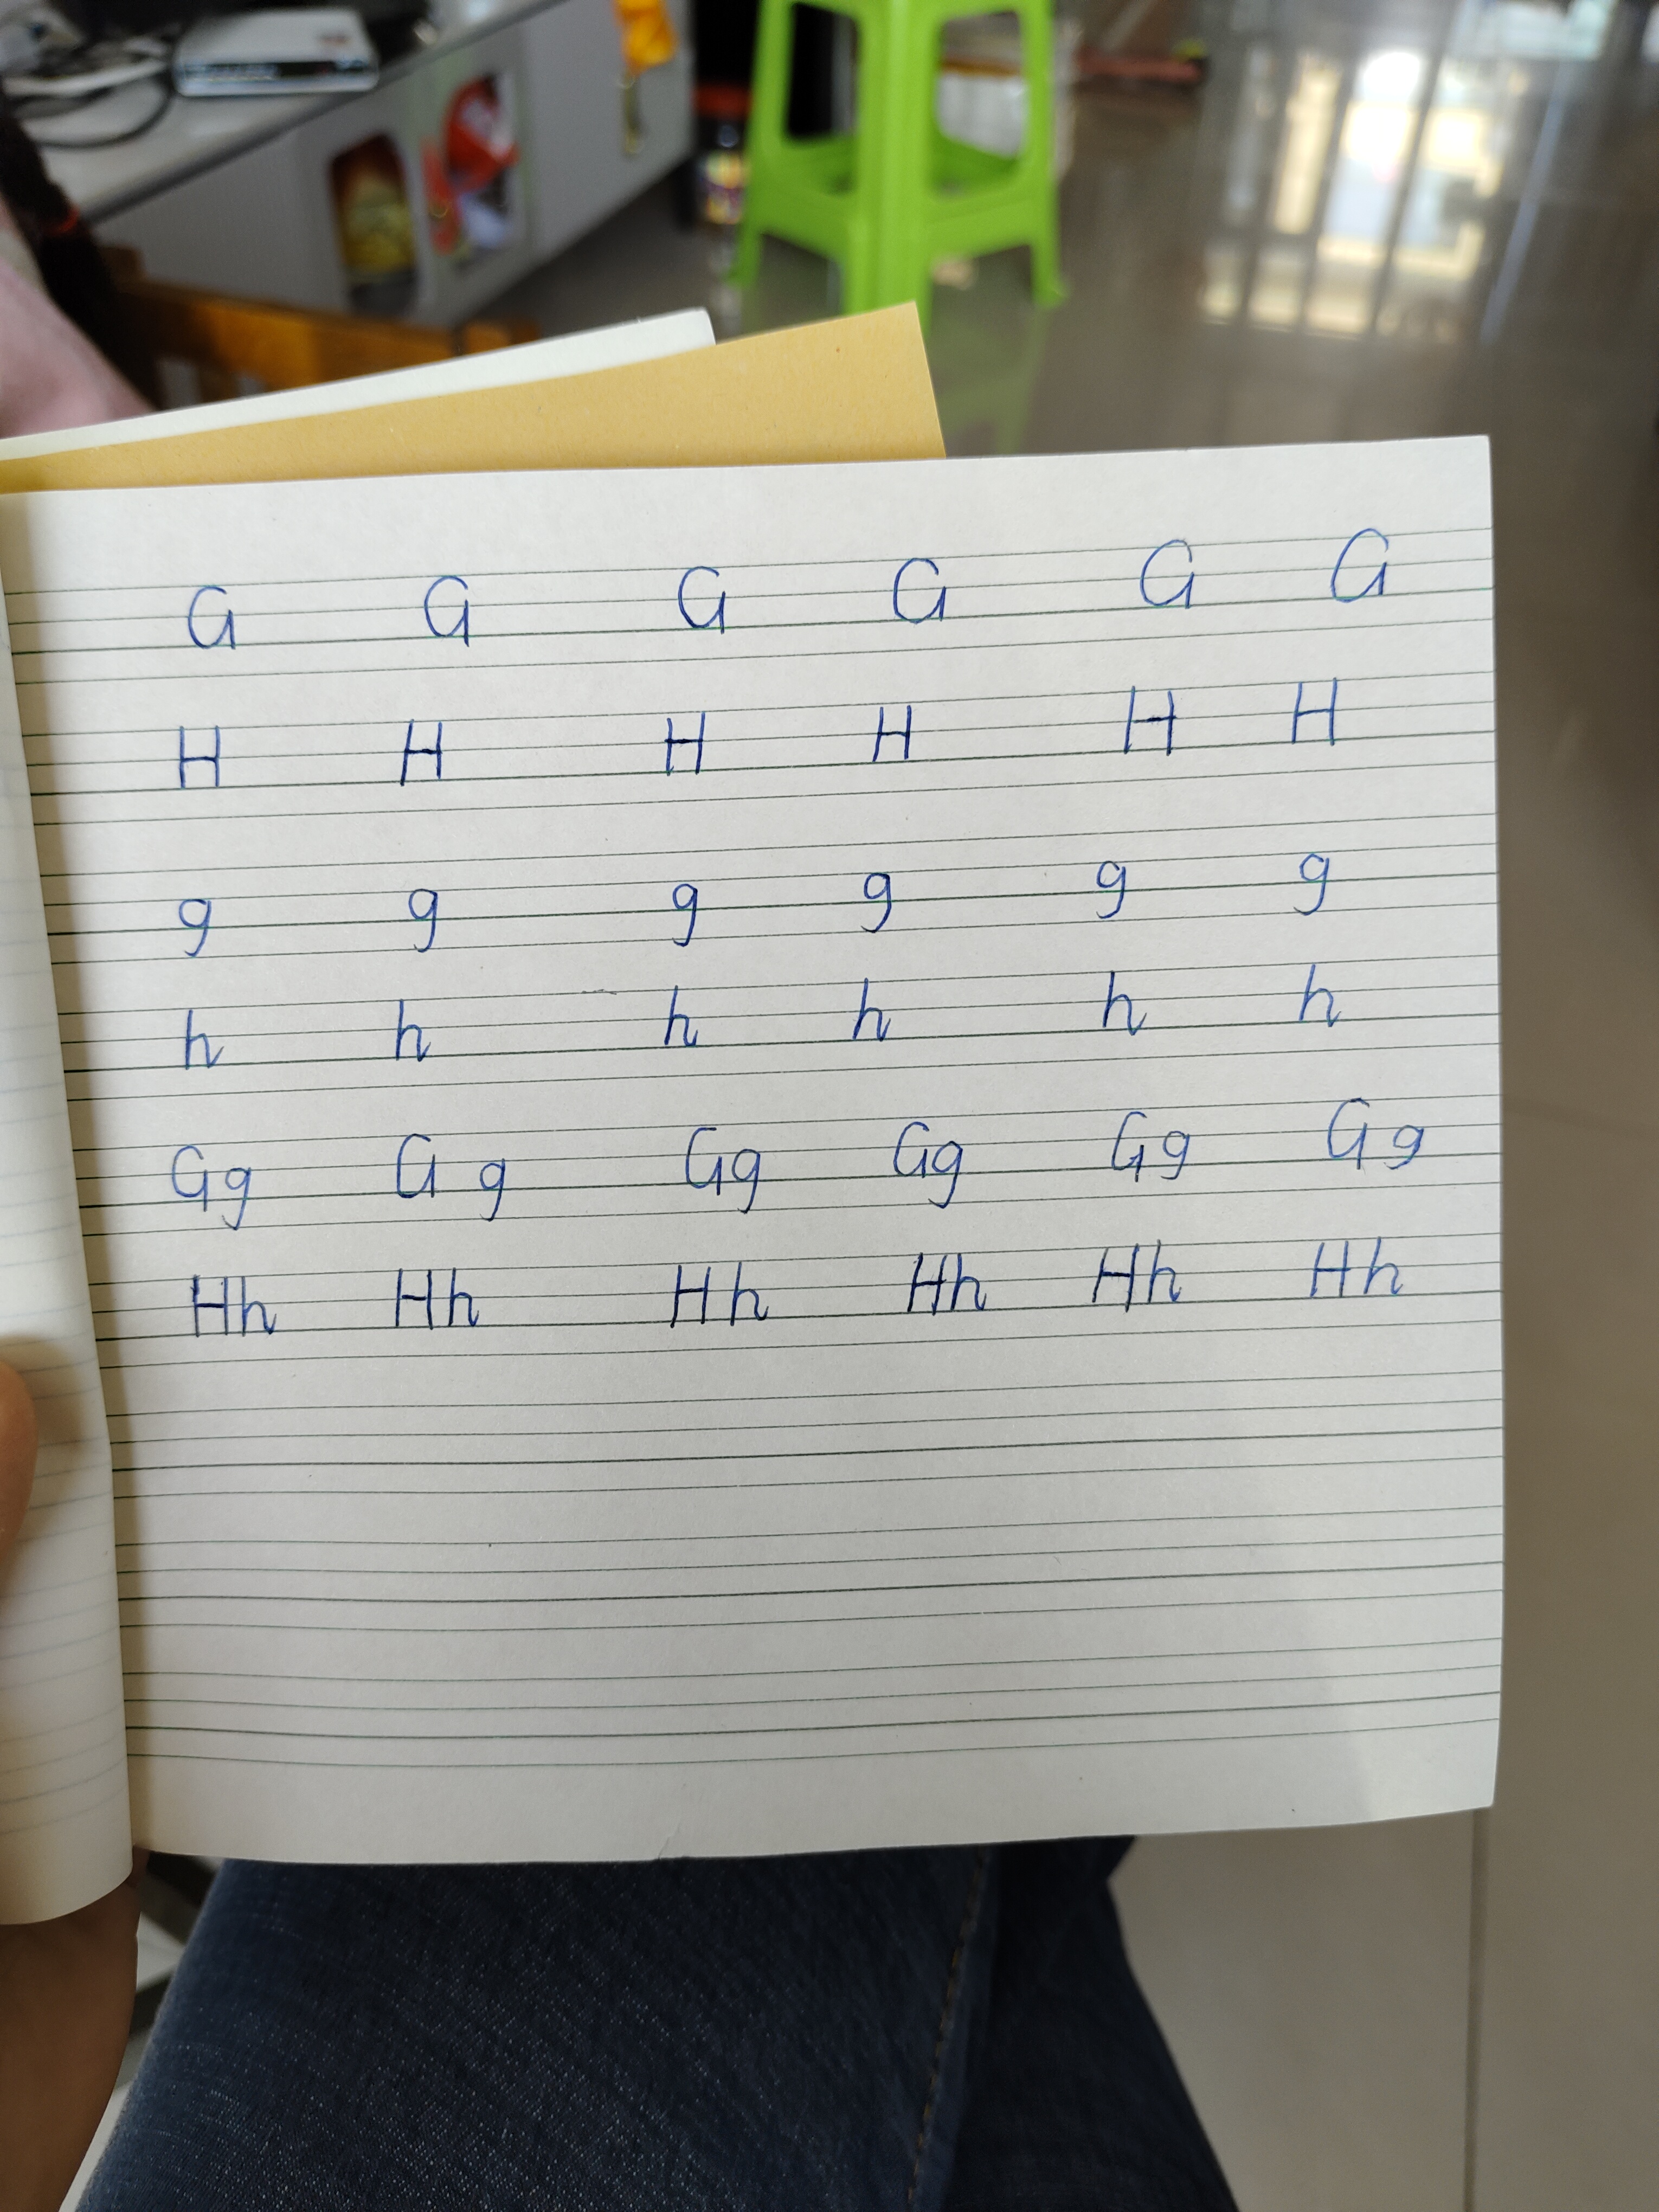 G G G G G G
H H H H H H
g g g g g g
h h h h h h
Gg G g Gg Gg Gg G g
Hh Hh Hh Hh Hh Hh